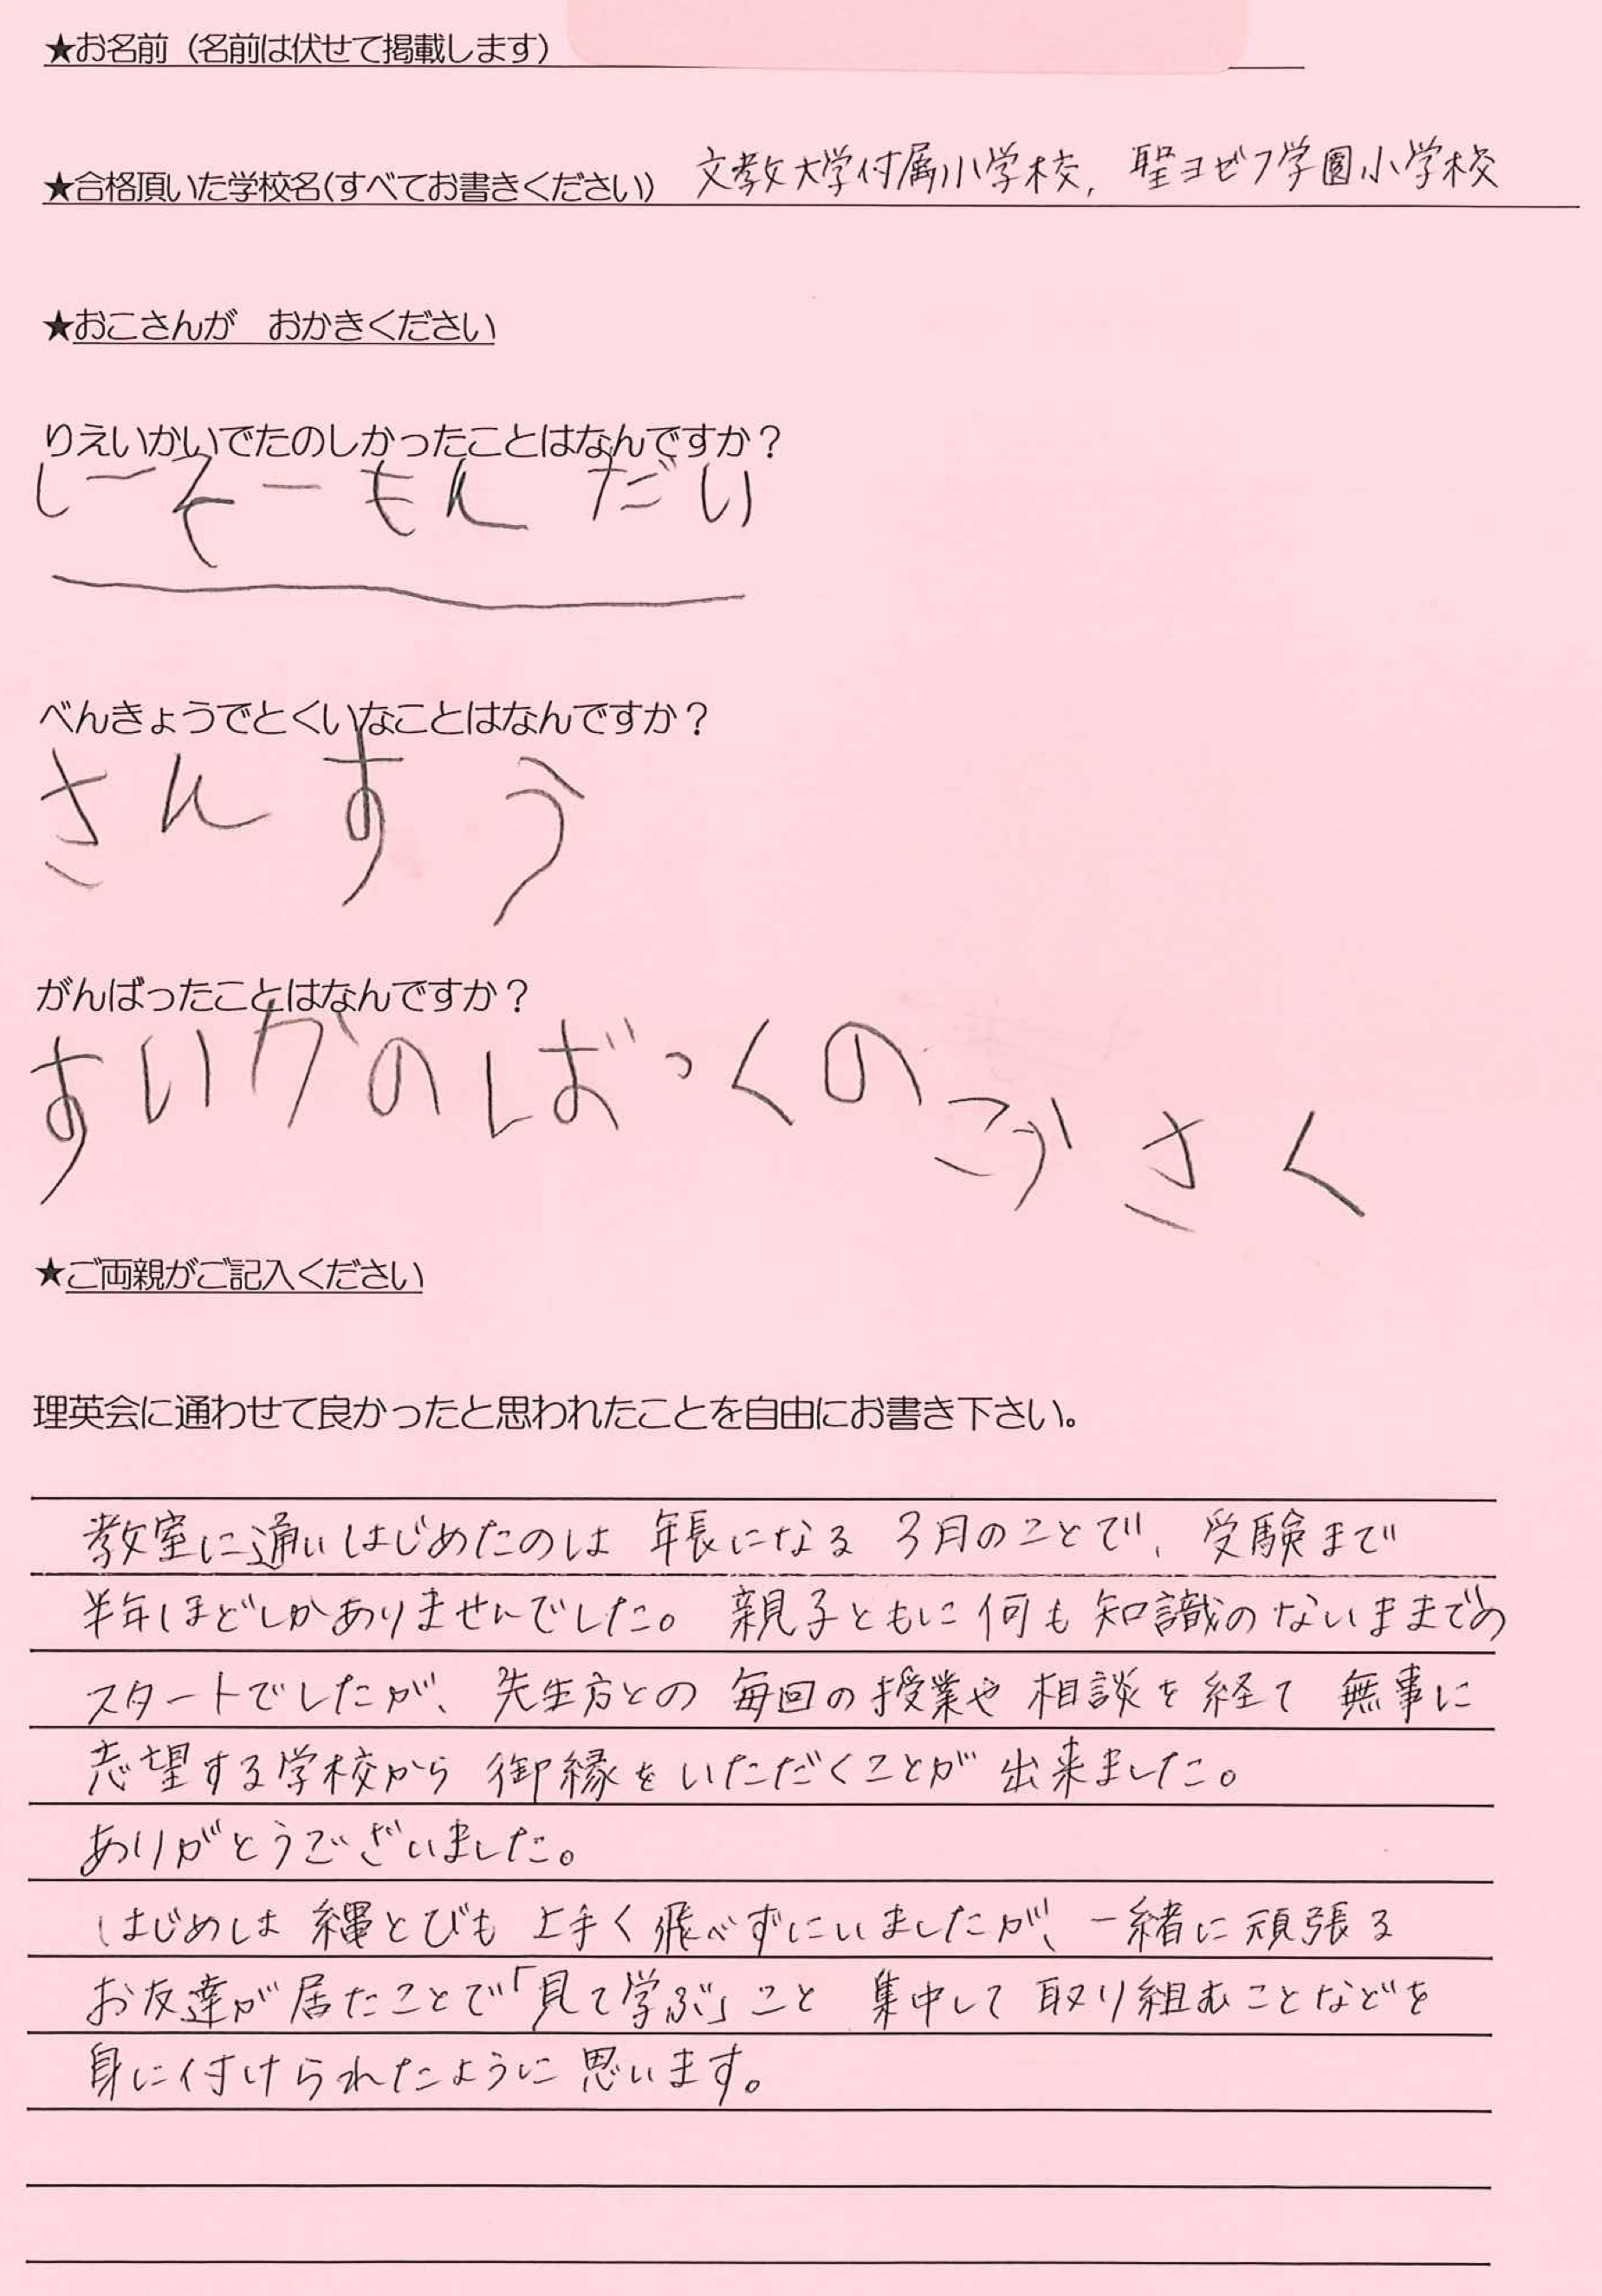 ★お名前（名前は伏せて掲載します）
★合格頂いた学校名(すべてお書きください) 文教大学付属小学校, 聖ヨゼフ学園小学校
★おこさんが　おかきください
りえいかいでたのしかったことはなんですか？
しーそーもんだい
べんきょうでとくいなことはなんですか？
さんすう
がんばったことはなんですか？
すいかのばっくのこうさく
★ご両親がご記入ください
理英会に通わせて良かったと思われたことを自由にお書き下さい。
教室に通いはじめたのは 年長になる 3月のことで、受験まで
半年ほどしかありませんでした。親子ともに何も知識のないままでの
スタートでしたが、先生方との毎回の授業や相談を経て 無事に
志望する学校から 御縁をいただくことが出来ました。
ありがとうございました。
はじめは 縄とびも 上手く飛べずにいましたが、一緒に頑張る
お友達が居たことで「見て学ぶ」こと 集中して取り組むことなどを
身に付けられたように思います。